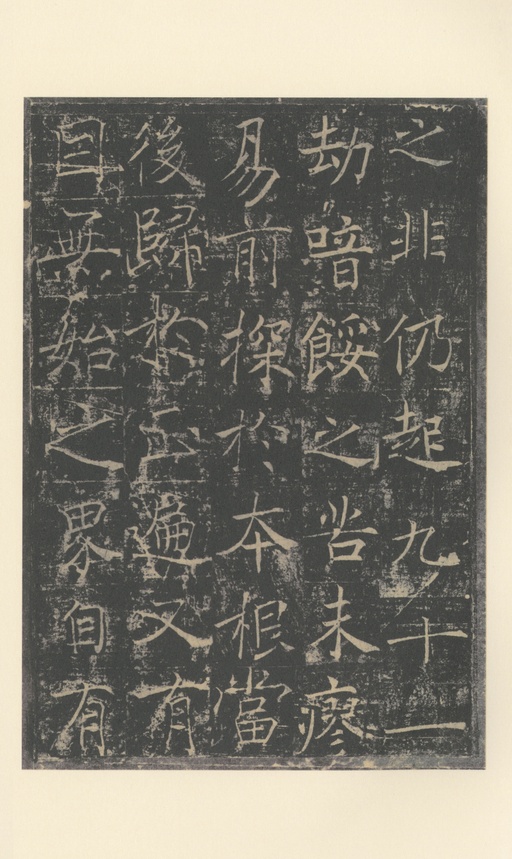 之非仍起九十一
劫喑餒之咎未瘳
易前探於本根當
後歸於正遍又有
目無始之界自有